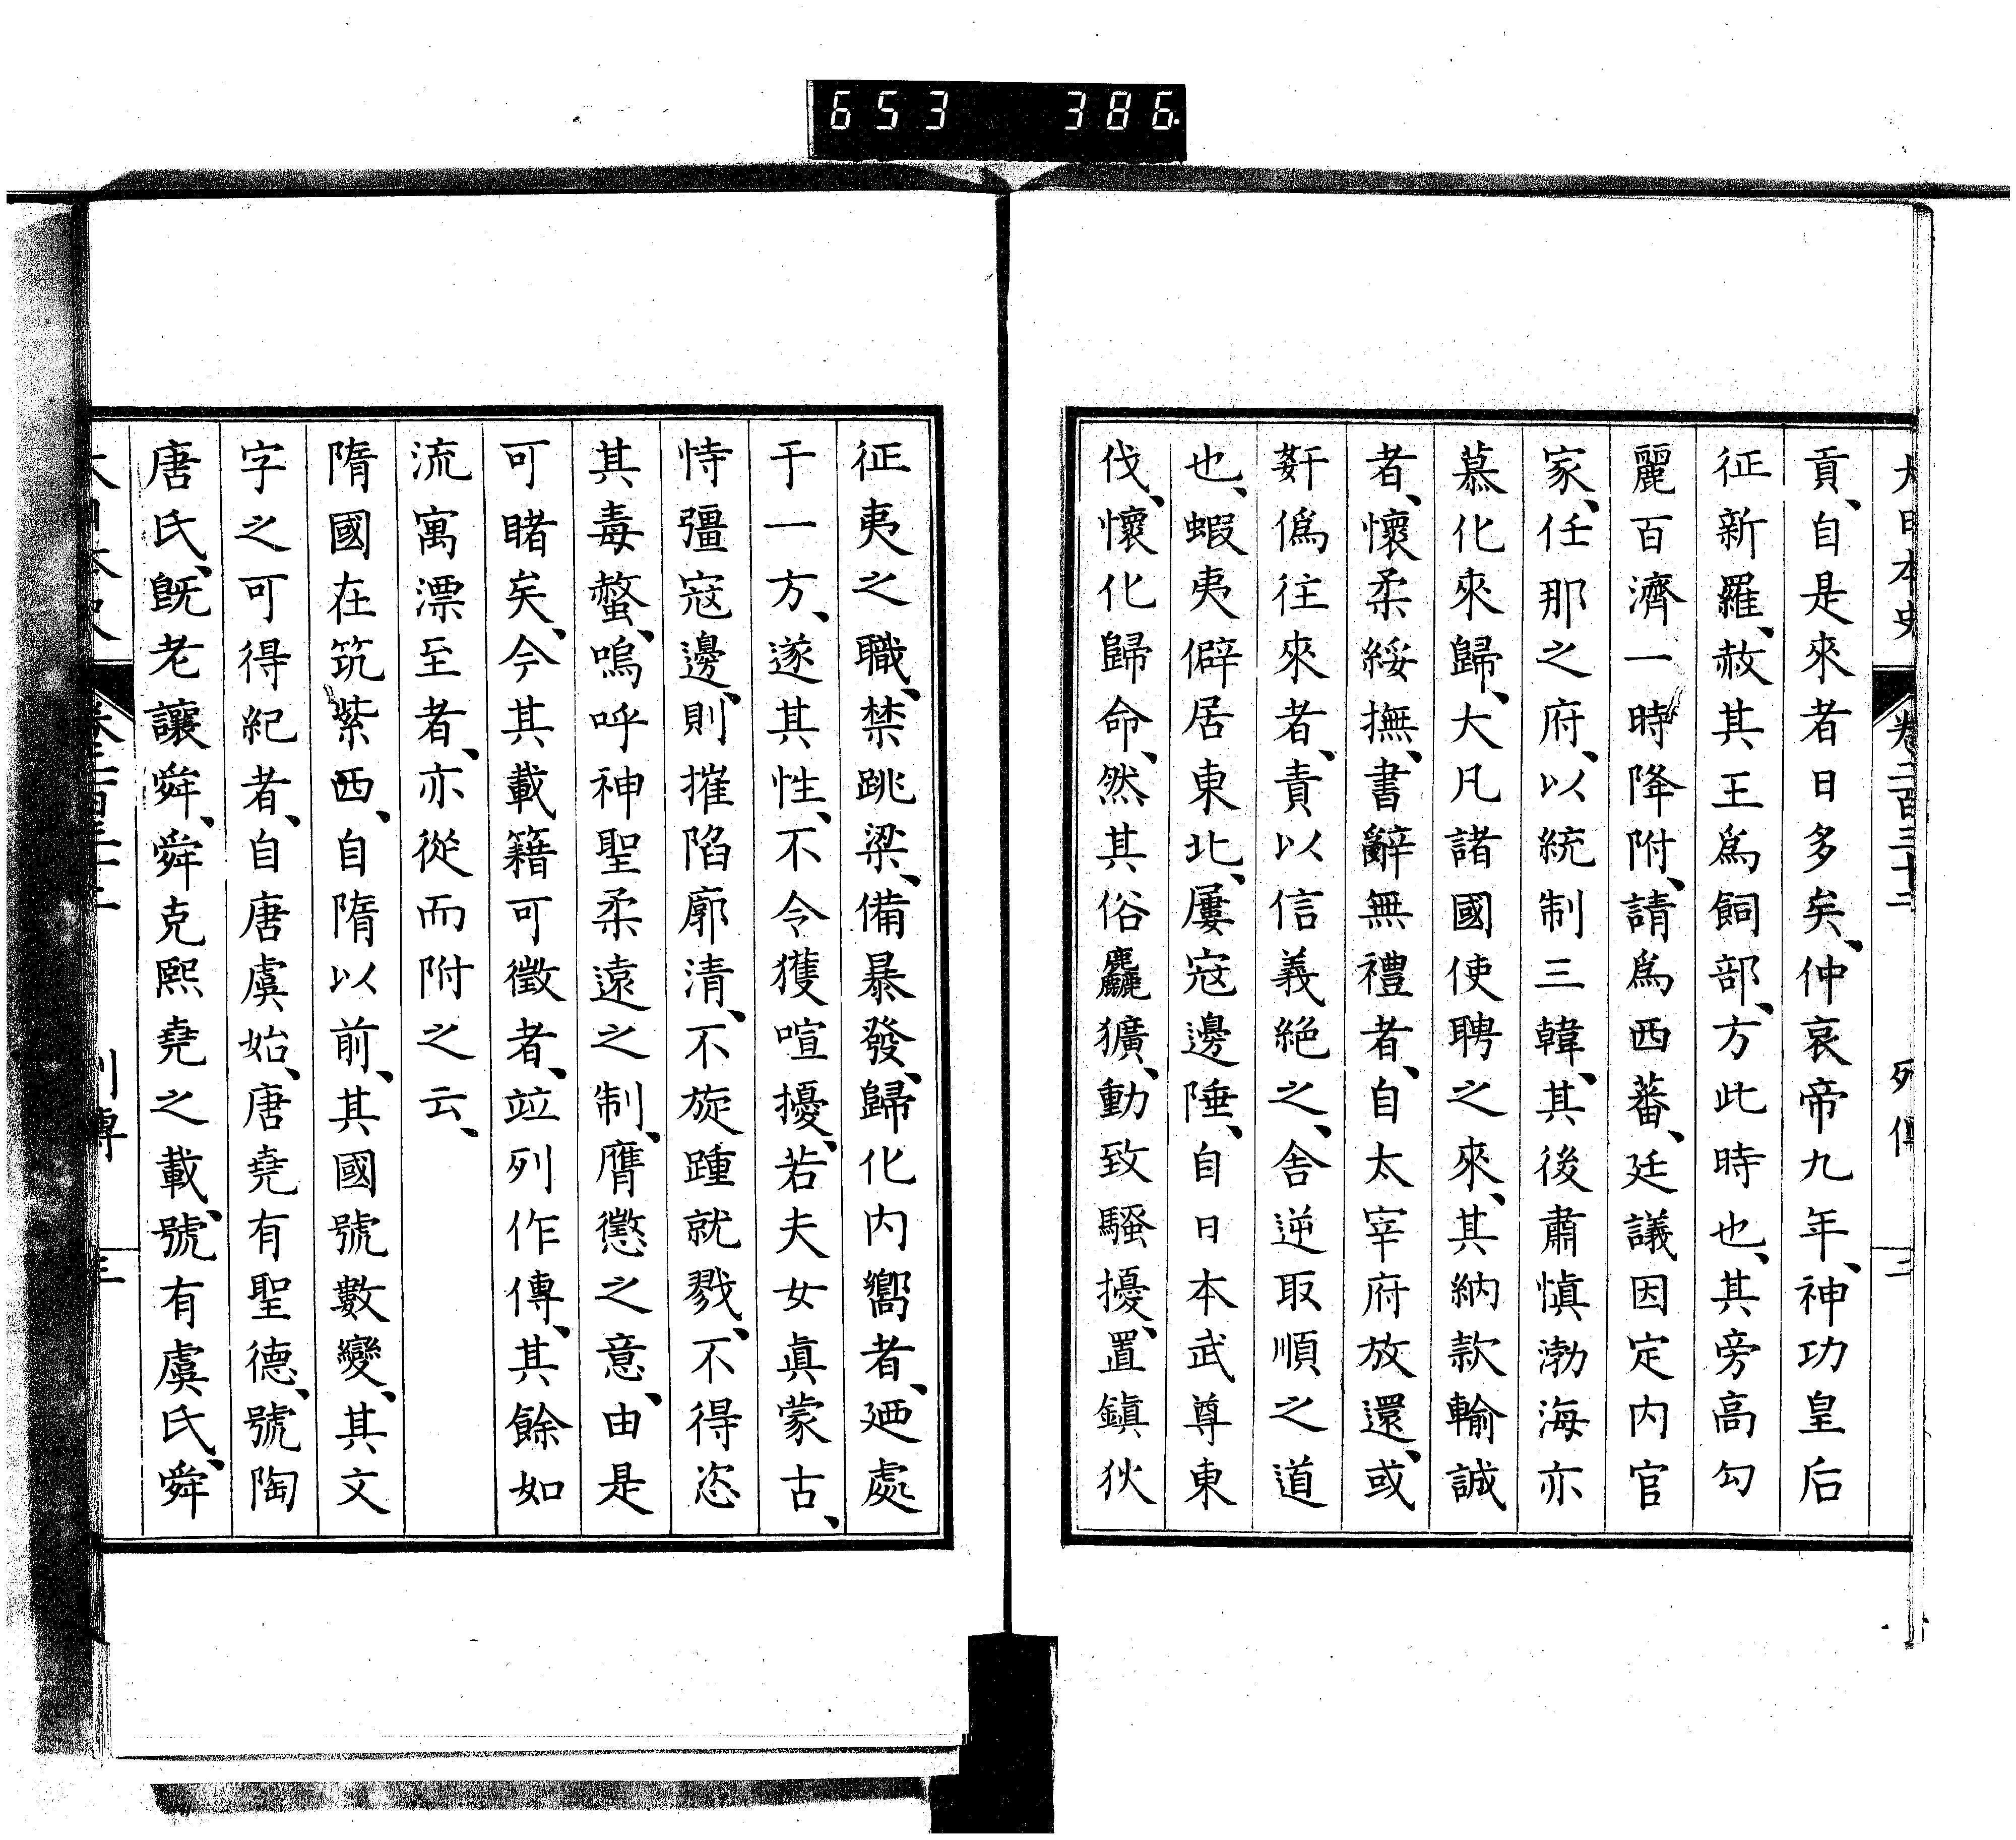 653 386
大日本史 卷二百三十二 列傳 二
貢、自是來者日多矣、仲哀帝九年、神功皇后
征新羅、赦其王爲飼部、方此時也、其旁高勾
麗百濟一時降附、請爲西蕃、廷議因定内官
家、任那之府、以統制三韓、其後肅愼渤海亦
慕化來歸、大凡諸國使聘之來、其納款輸誠
者、懷柔綏撫、書辭無禮者、自太宰府放還、或
姧僞往來者、責以信義絶之、舍逆取順之道
也、蝦夷僻居東北、屢寇邊陲、自日本武尊東
伐、懷化歸命、然其俗麤獷、動致騷擾、置鎭狄
征夷之職、禁跳梁、備暴發、歸化内嚮者、廼處
于一方、遂其性、不令獲喧擾、若夫女眞蒙古、
恃彊寇邊、則摧陷廓清、不旋踵就戮、不得恣
其毒螫、嗚呼神聖柔遠之制、膺懲之意、由是
可睹矣、今其載籍可徵者、竝列作傳、其餘如
流寓漂至者、亦從而附之云、
隋國在筑紫西、自隋以前、其國號數變、其文
字之可得紀者、自唐虞始、唐堯有聖德、號陶
唐氏、旣老讓舜、舜克熙堯之載、號有虞氏、舜
大日本史 卷二百三十二 列傳 三